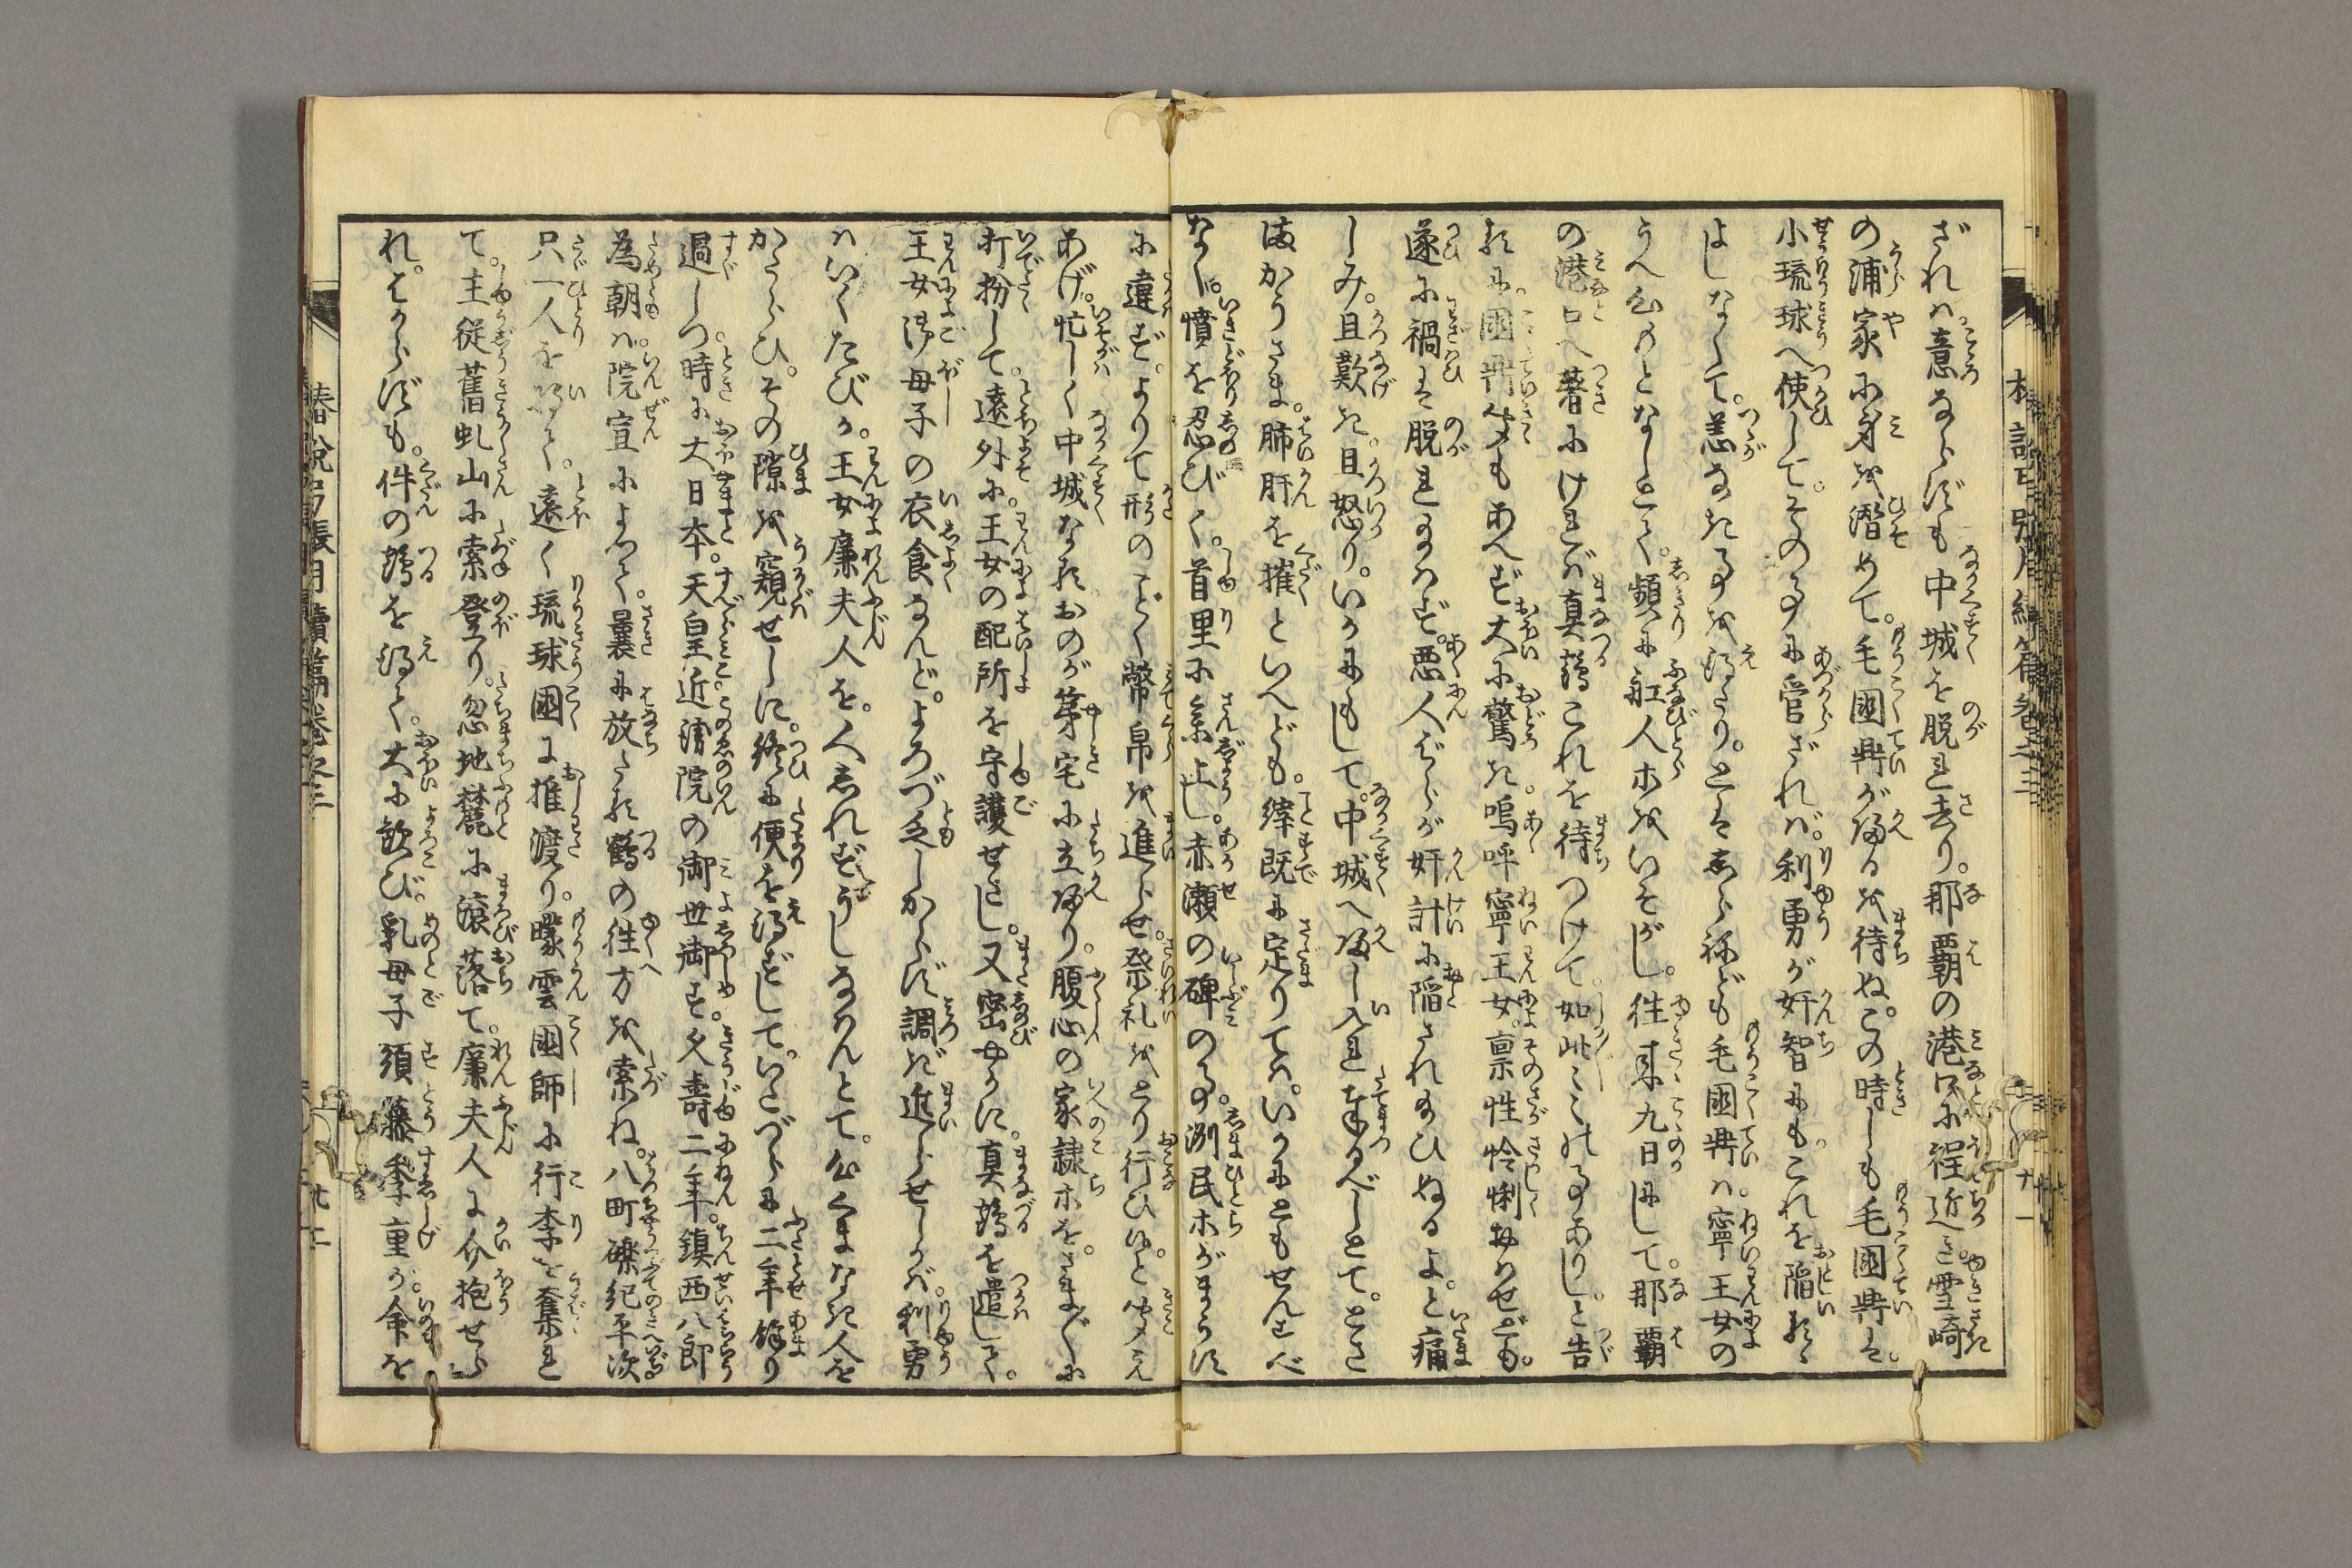 ざれは。意ならずも中城を脱れ去り。那覇の港口に程近き。雪崎
の浦家に身を潜めて。毛國鼎が帰るを待ぬ。この時しも毛國鼎は。
小琉球へ使して。その事に管ざれば。利勇が奸智にも。これを陥るゝ
よしなくて。恙なき事を得たり。とはしらねども毛國鼎は。寧王女の
うへ心のとなしとく。頻に舩人ホをいそがし。徃来九日にして。那覇
の港口へ著にければ。真鶴これを待つけて。如此〻〻の事ありしと告
るに。國鼎聞もあへず大に驚き。嗚呼寧王女。禀性怜悧おはせども。
遂に禍は脱れ給はず。悪人ばらが奸計に陥されぬひぬるよ。と痛
しみ。且歎き。且怒り。いかにもして。中城へ帰し入れ奉るべしとて。とさ
まかうさま。肺肝を摧といへども。縡既に定りては。いかにともせんすべ
なく。憤を忍びて。首里に参上し。赤瀬の碑の事。洌民ホがまうす
に違ず。よりて形のごとく幣帛を進らせ。祭礼をとり行ひぬ。と聞え
あげ。忙しく中城なるおのが第宅に立帰り。腹心の家隷ホを。さま〴〵に
打扮して。遠外に。王女の配所を守護せさし。又密やかに。真鶴を遣して。
王女御母子の衣食なんど。よろづ乏しからず調じ進らせしかば。利勇
はいくたびか。王女廉夫人を。人しれずうしなはんとて。心くまなき人を
かたらひ。その隙を窺せしに。終に便を得ずして。いたづらに二年餘り
過しつ。時に大日本。天皇近衛院の御世御す。久壽二年。鎮西八郎
為朝は。院宣によつて。曩に放たる鶴の徃方を索ね。八町礫紀平次
只一人を将て。遠く琉球國に推渡り。曚雲國師に行李を奪れ
て。主従舊虬山に索登り。忽地麓に滾落て。廉夫人に介抱せら
れ。はからずも。件の鶴を得て。大に歓び。乳母子須藤季重が。命を
椿説弓張月續篇卷之三